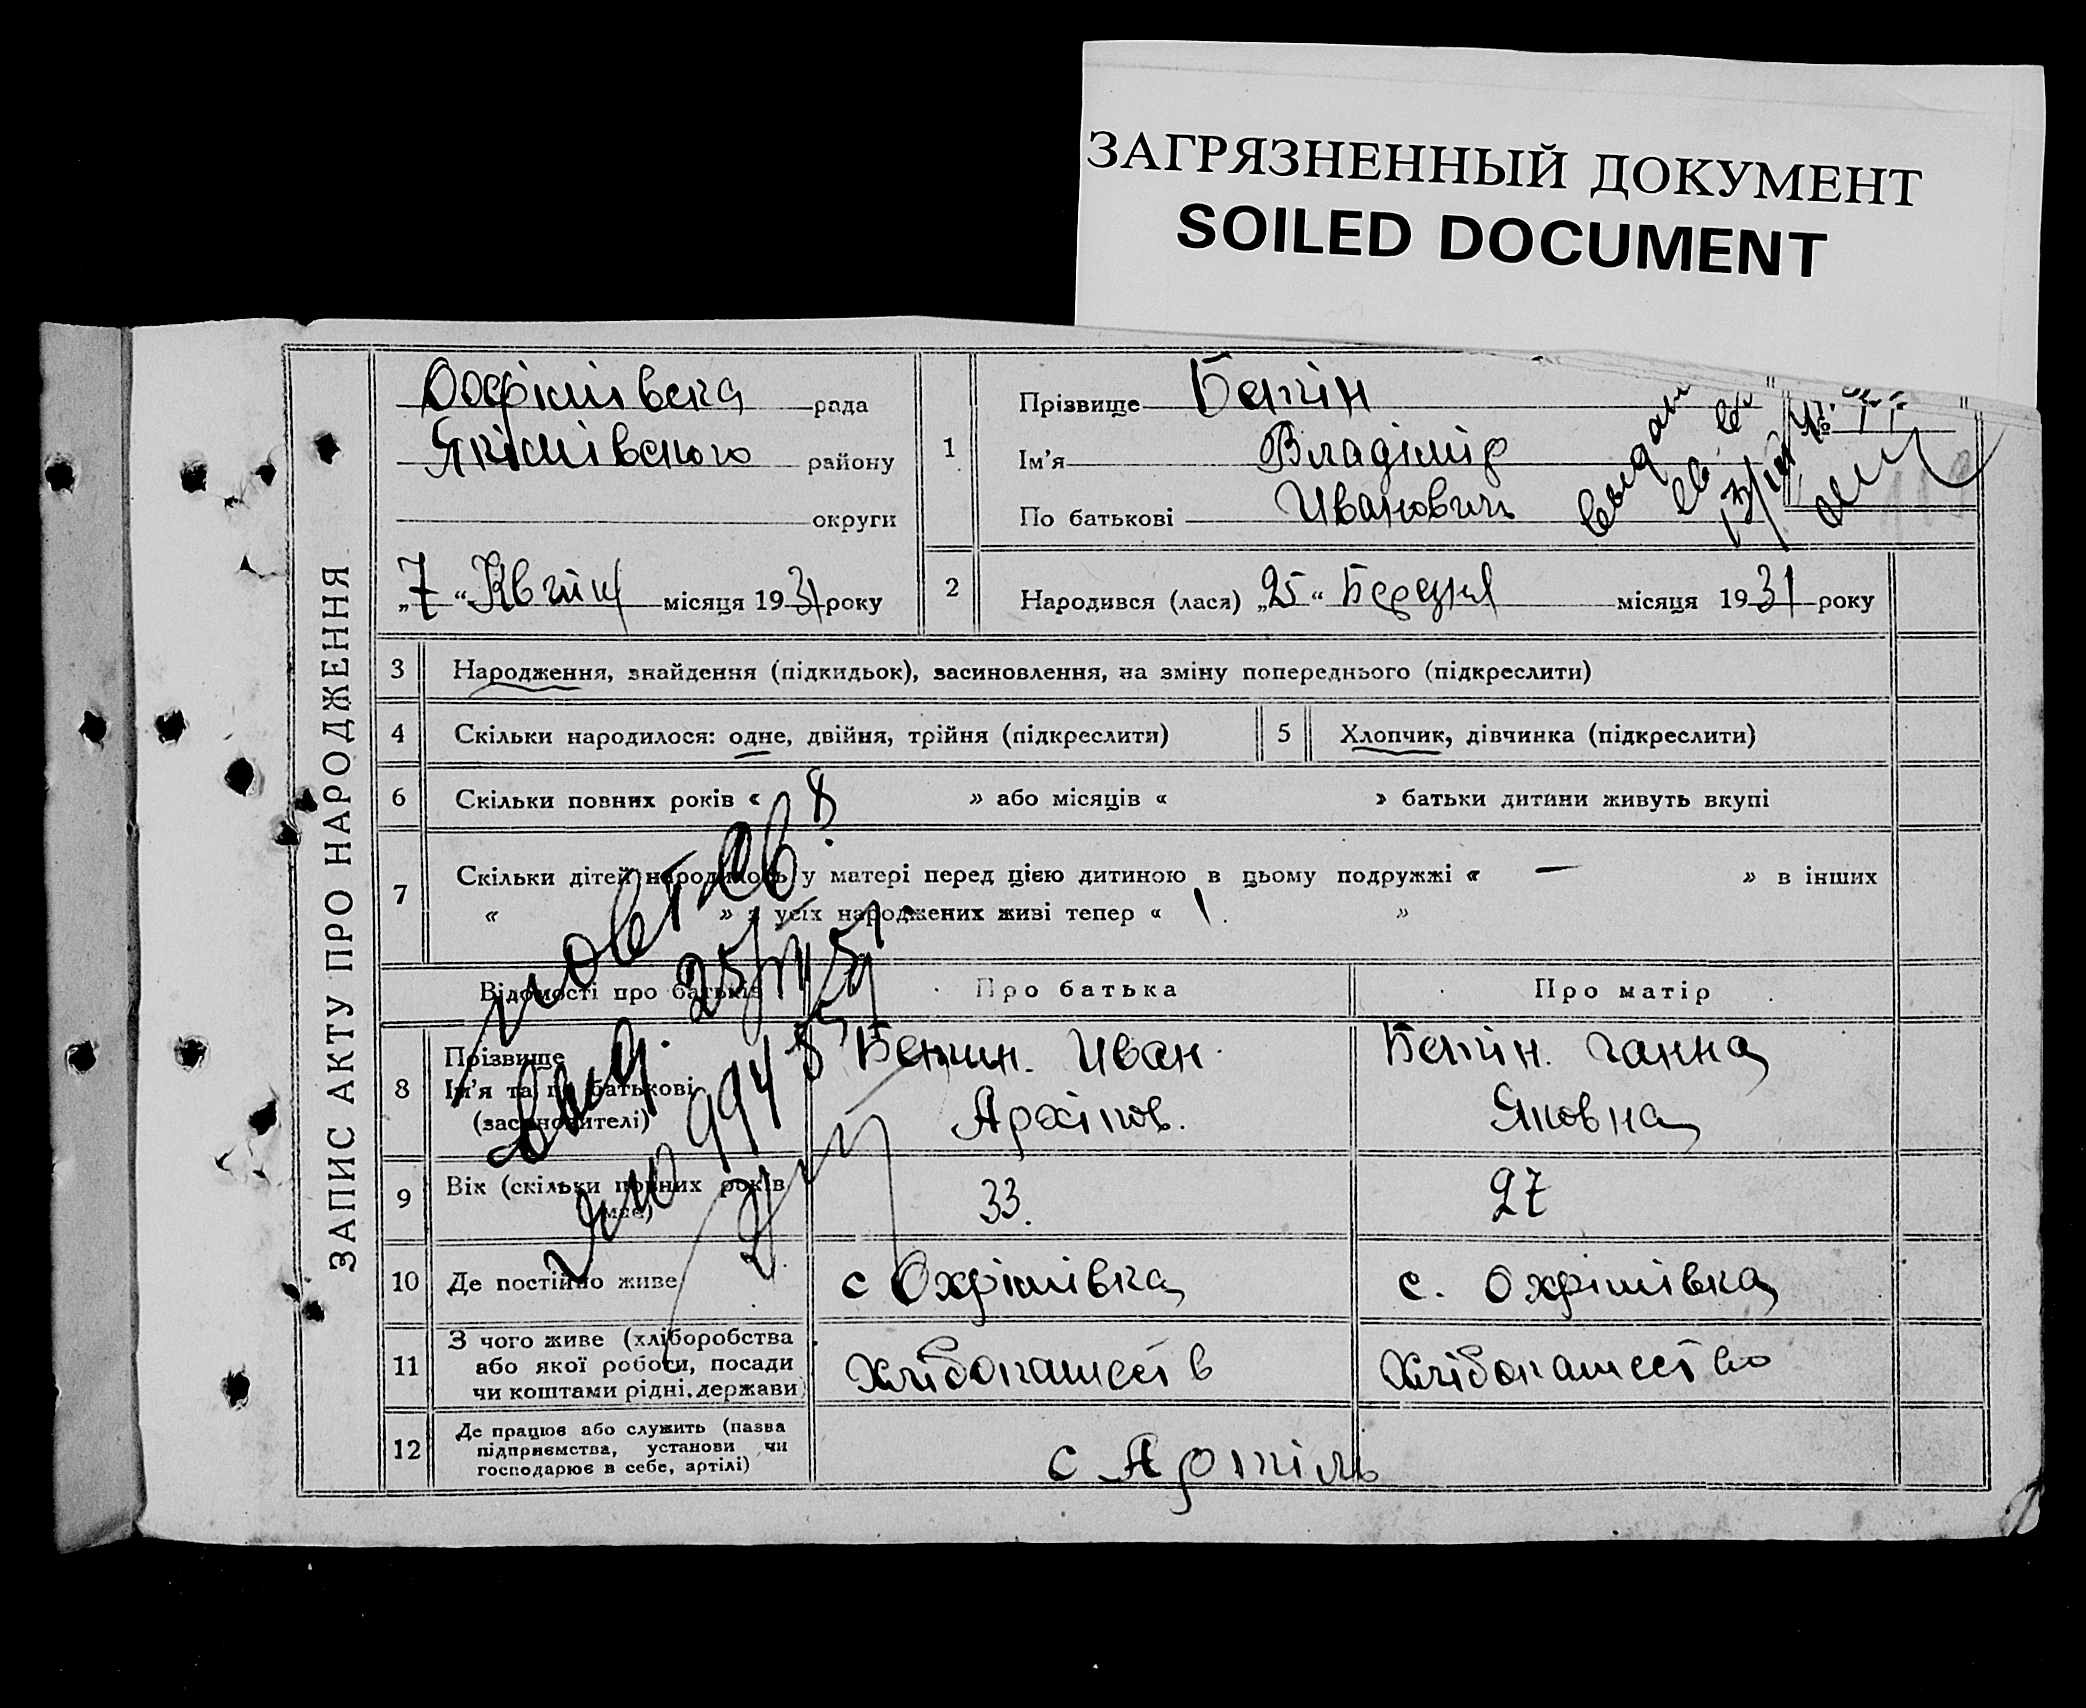 ЗАГРЯЗНЕННЫЙ ДОКУМЕНТ
SOILED DOCUMENT
ЗАПИС АКТУ ПРО НАРОДЖЕННЯ
Охрімівска рада
Якімівского району
округи
„7“ Квітня місяця 1931 року
1
Прізвище
Ім'я Владімір
По батькові Иванович
№
2 Народився (лася) „25“ Березня місяця 1931 року
3 Народження, знайдення (підкидьок), засиновлення, на зміну попереднього (підкреслити)
4 Скільки народилося: одне, двійня, трійня (підкреслити) 5 Хлопчик, дівчинка (підкреслити)
6 Скільки повних років « 8 » або місяців « » батьки дитини живуть вкупі
7 Скільки дітей народилось у матері перед цією дитиною в цьому подружжі « — » в інших
« » з усіх народжених живі тепер « 1. »
Відомості про батьків Про батька Про матір
8 Прізвище Иван Ганна
Ім'я та по батькові Архіпов. Яковна
(засиновителі)
повт. св.
выд. 25/
994
9 Вік (скільки повних років має) 33. 27
10 Де постійно живе с Охрімівка с. Охрімівка
11 З чого живе (хліборобства
або якої роботи, посади
чи коштами рідні. держави) Хлібопашеств Хлібопашество
12 Де працює або служить (назва
підприємства, установи чи
господарює в себе, артілі) с Артіль